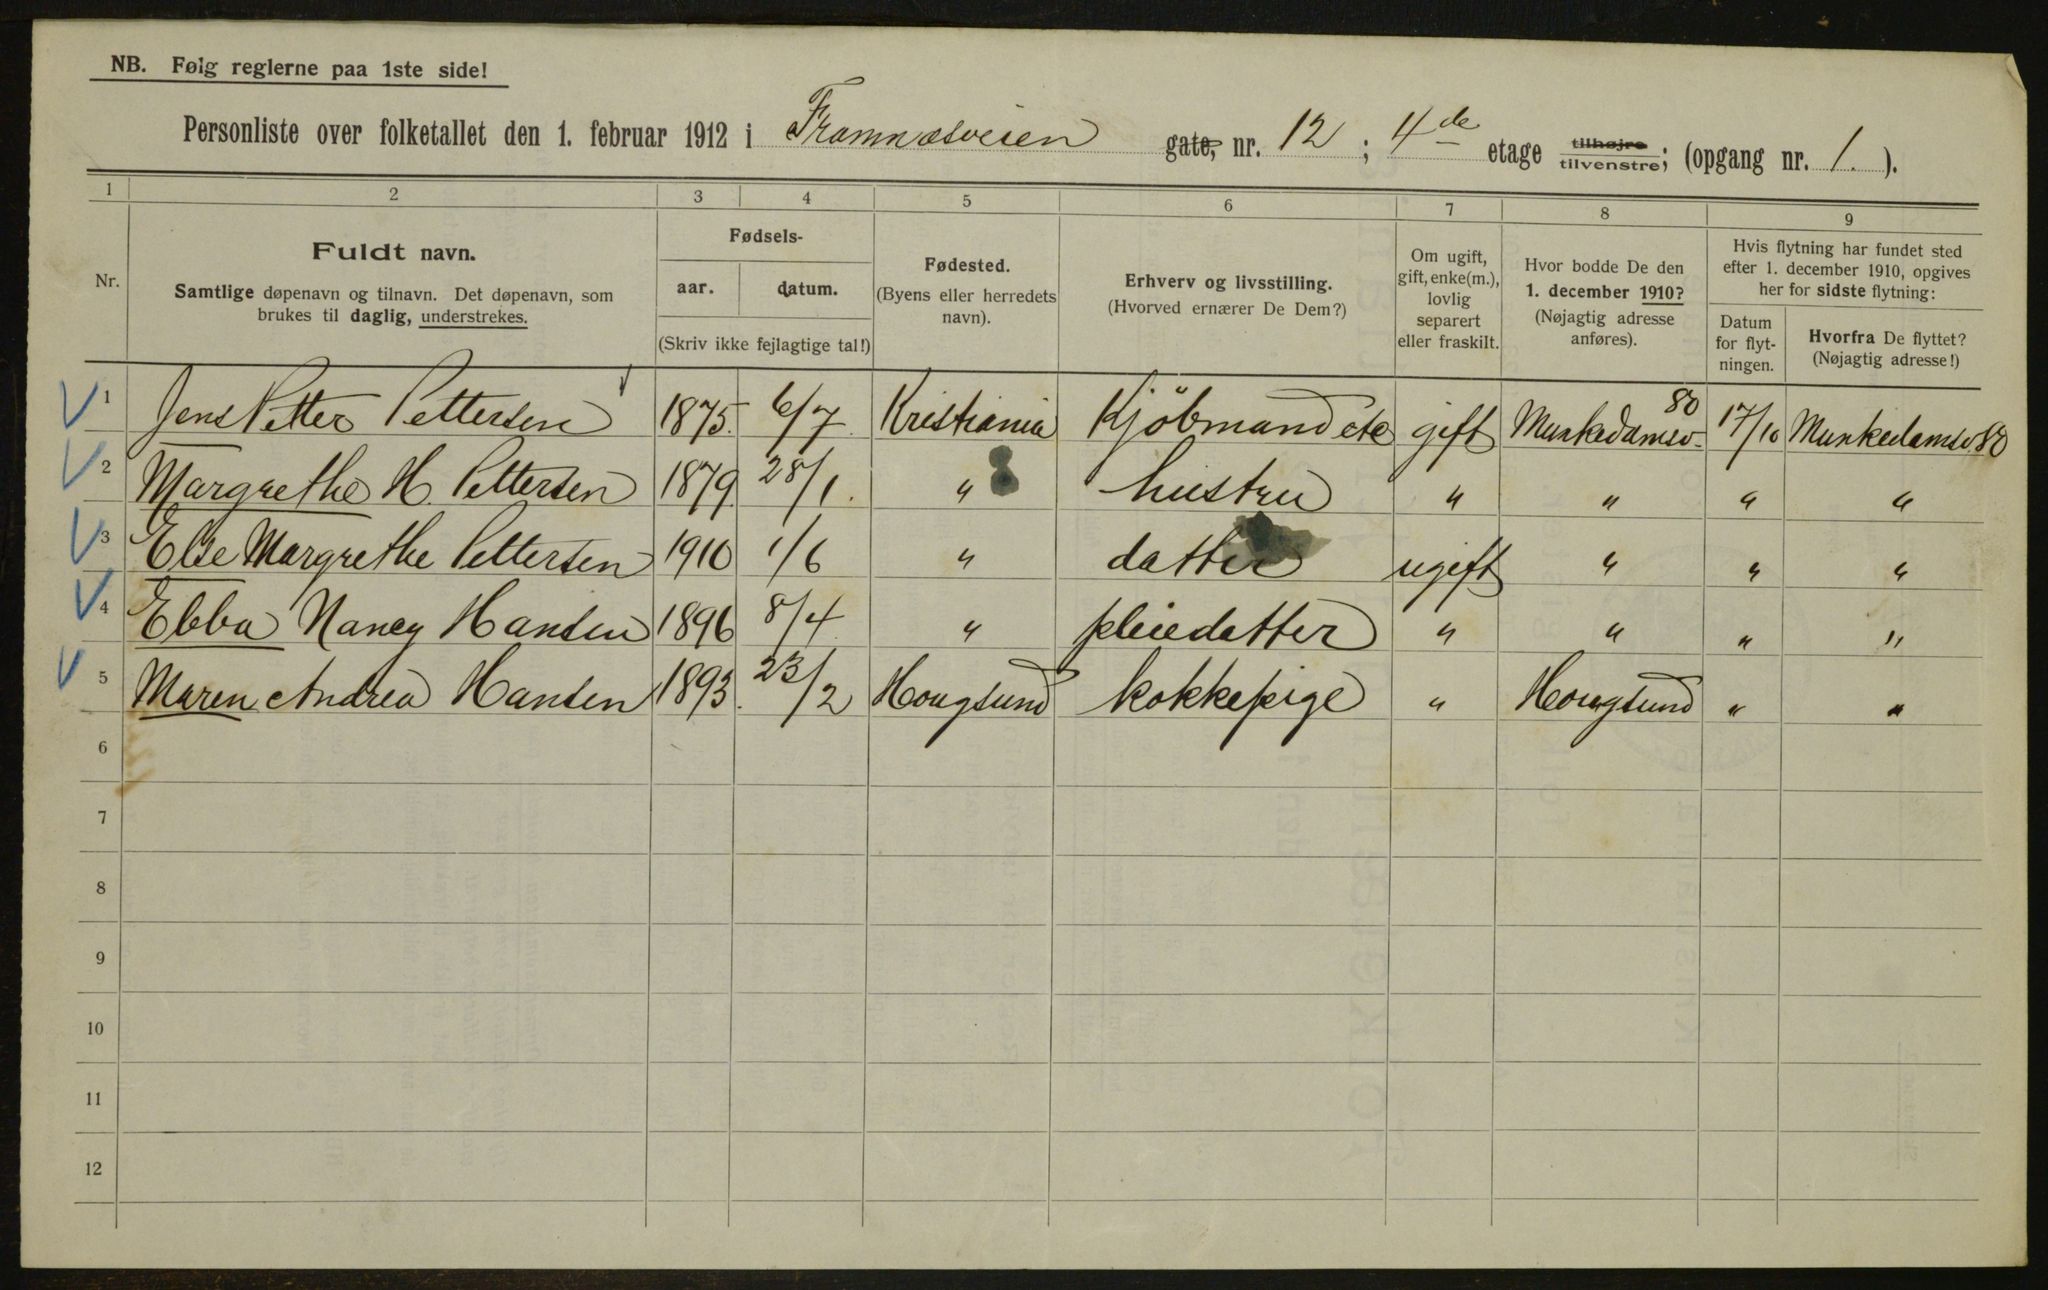 NB. Følg reglerne paa 1ste side!
Personliste over folketallet den 1. februar 1912 i Framnæsveien gate, nr. 12; 4de etage tilhøjre tilvenstre; (opgang nr. 1.).
1 2 3 4 5 6 7 8 9
Nr.
Fuldt navn.
Samtlige døpenavn og tilnavn. Det døpenavn, som
brukes til daglig, understrekes.
Fødsels-
aar. datum.
(Skriv ikke fejlagtige tal!)
Fødested.
(Byens eller herredets
navn).
Erhverv og livsstilling.
(Hvorved ernærer De Dem?)
Om ugift,
gift, enke(m.),
lovlig
separert
eller fraskilt.
Hvor bodde De den
1. december 1910?
(Nøjagtig adresse
anføres).
Hvis flytning har fundet sted
efter 1. december 1910, opgives
her for sidste flytning:
Datum
for flyt-
ningen.
Hvorfra De flyttet?
(Nøjagtig adresse!)
1 Jens Petter Pettersen 1875. 6/7. Kristiania Kjöbmand etc gift Munkedamsv. 80 17/10 Munkedamsv. 80
2 Margrethe H. Pettersen 1879. 28/1. " hustru " " " "
3 Else Margrethe Pettersen 1910 1/6 " datter ugift " " "
4 Ebba Nancy Hansen 1896 8/4. " pleiedatter " " " "
5 Maren Andrea Hansen 1893. 23/2 Hougsund kokkepige " Hougsund " "
6
7
8
9
10
11
12